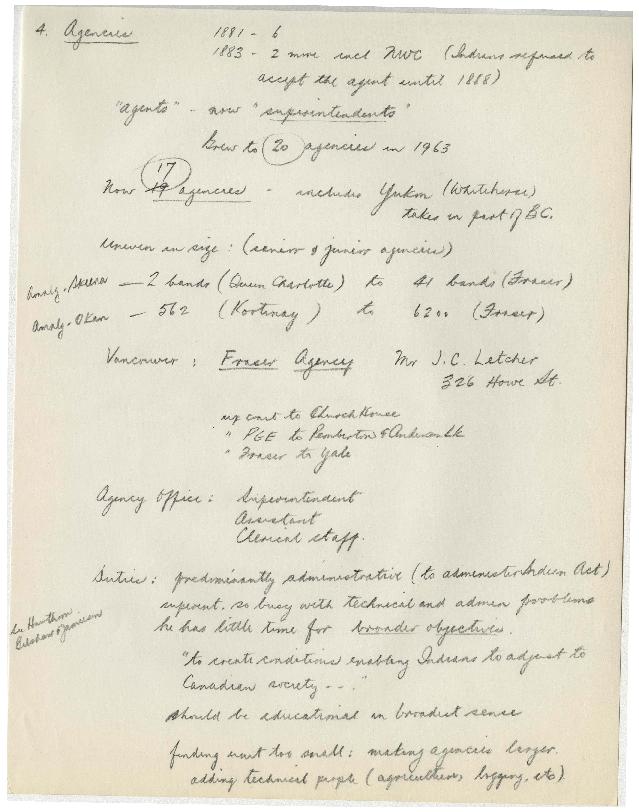 4. Agencies 1881 - 6
1883 - 2 more incl NWC (Indians refused to
accept the agent until 1888)
"agents" - now "superintendents"
Grew to 20 agencies in 1963
17
Now 19 agencies - includes Yukon (Whitehorse)
takes in part of BC.
Uneven in size: (senior & junior agencies)
Amalg. Skeena — 2 bands (Queen Charlotte) to 41 bands (Fraser)
Amalg. Okan — 562 (Kootenay) to 6200 (Fraser)
Vancouver: Fraser Agency Mr J.C. Letcher
326 Howe St.
up coast to Church House
" PGE to Pemberton & Anderson Lk
" Fraser to Yale
Agency Office: Superintendent
Assistant
Clerical staff.
Duties: predominantly administrative (to administer Indian Act)
superint. so busy with technical and admin problems
he has little time for broader objectives.
See Hawthorn
Belshaw & Jamieson
"to create conditions enabling Indians to adjust to
Canadian society - - ."
should be educational in broadest sense
finding unit too small: making agencies larger.
adding technical people (agriculture, logging, etc)